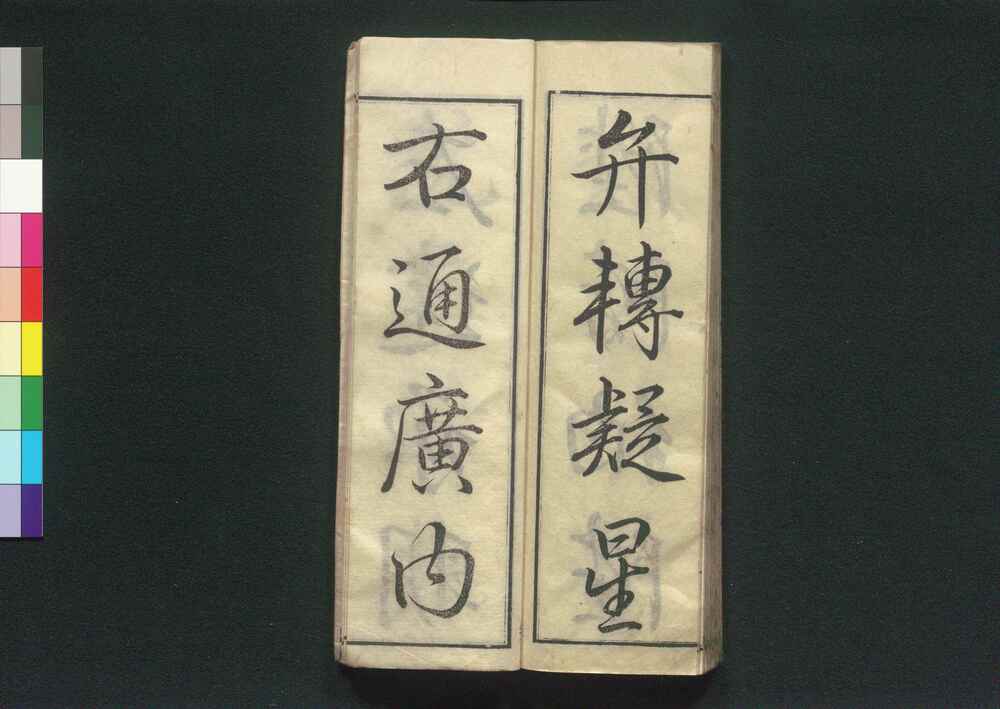 弁轉疑星
右通廣内